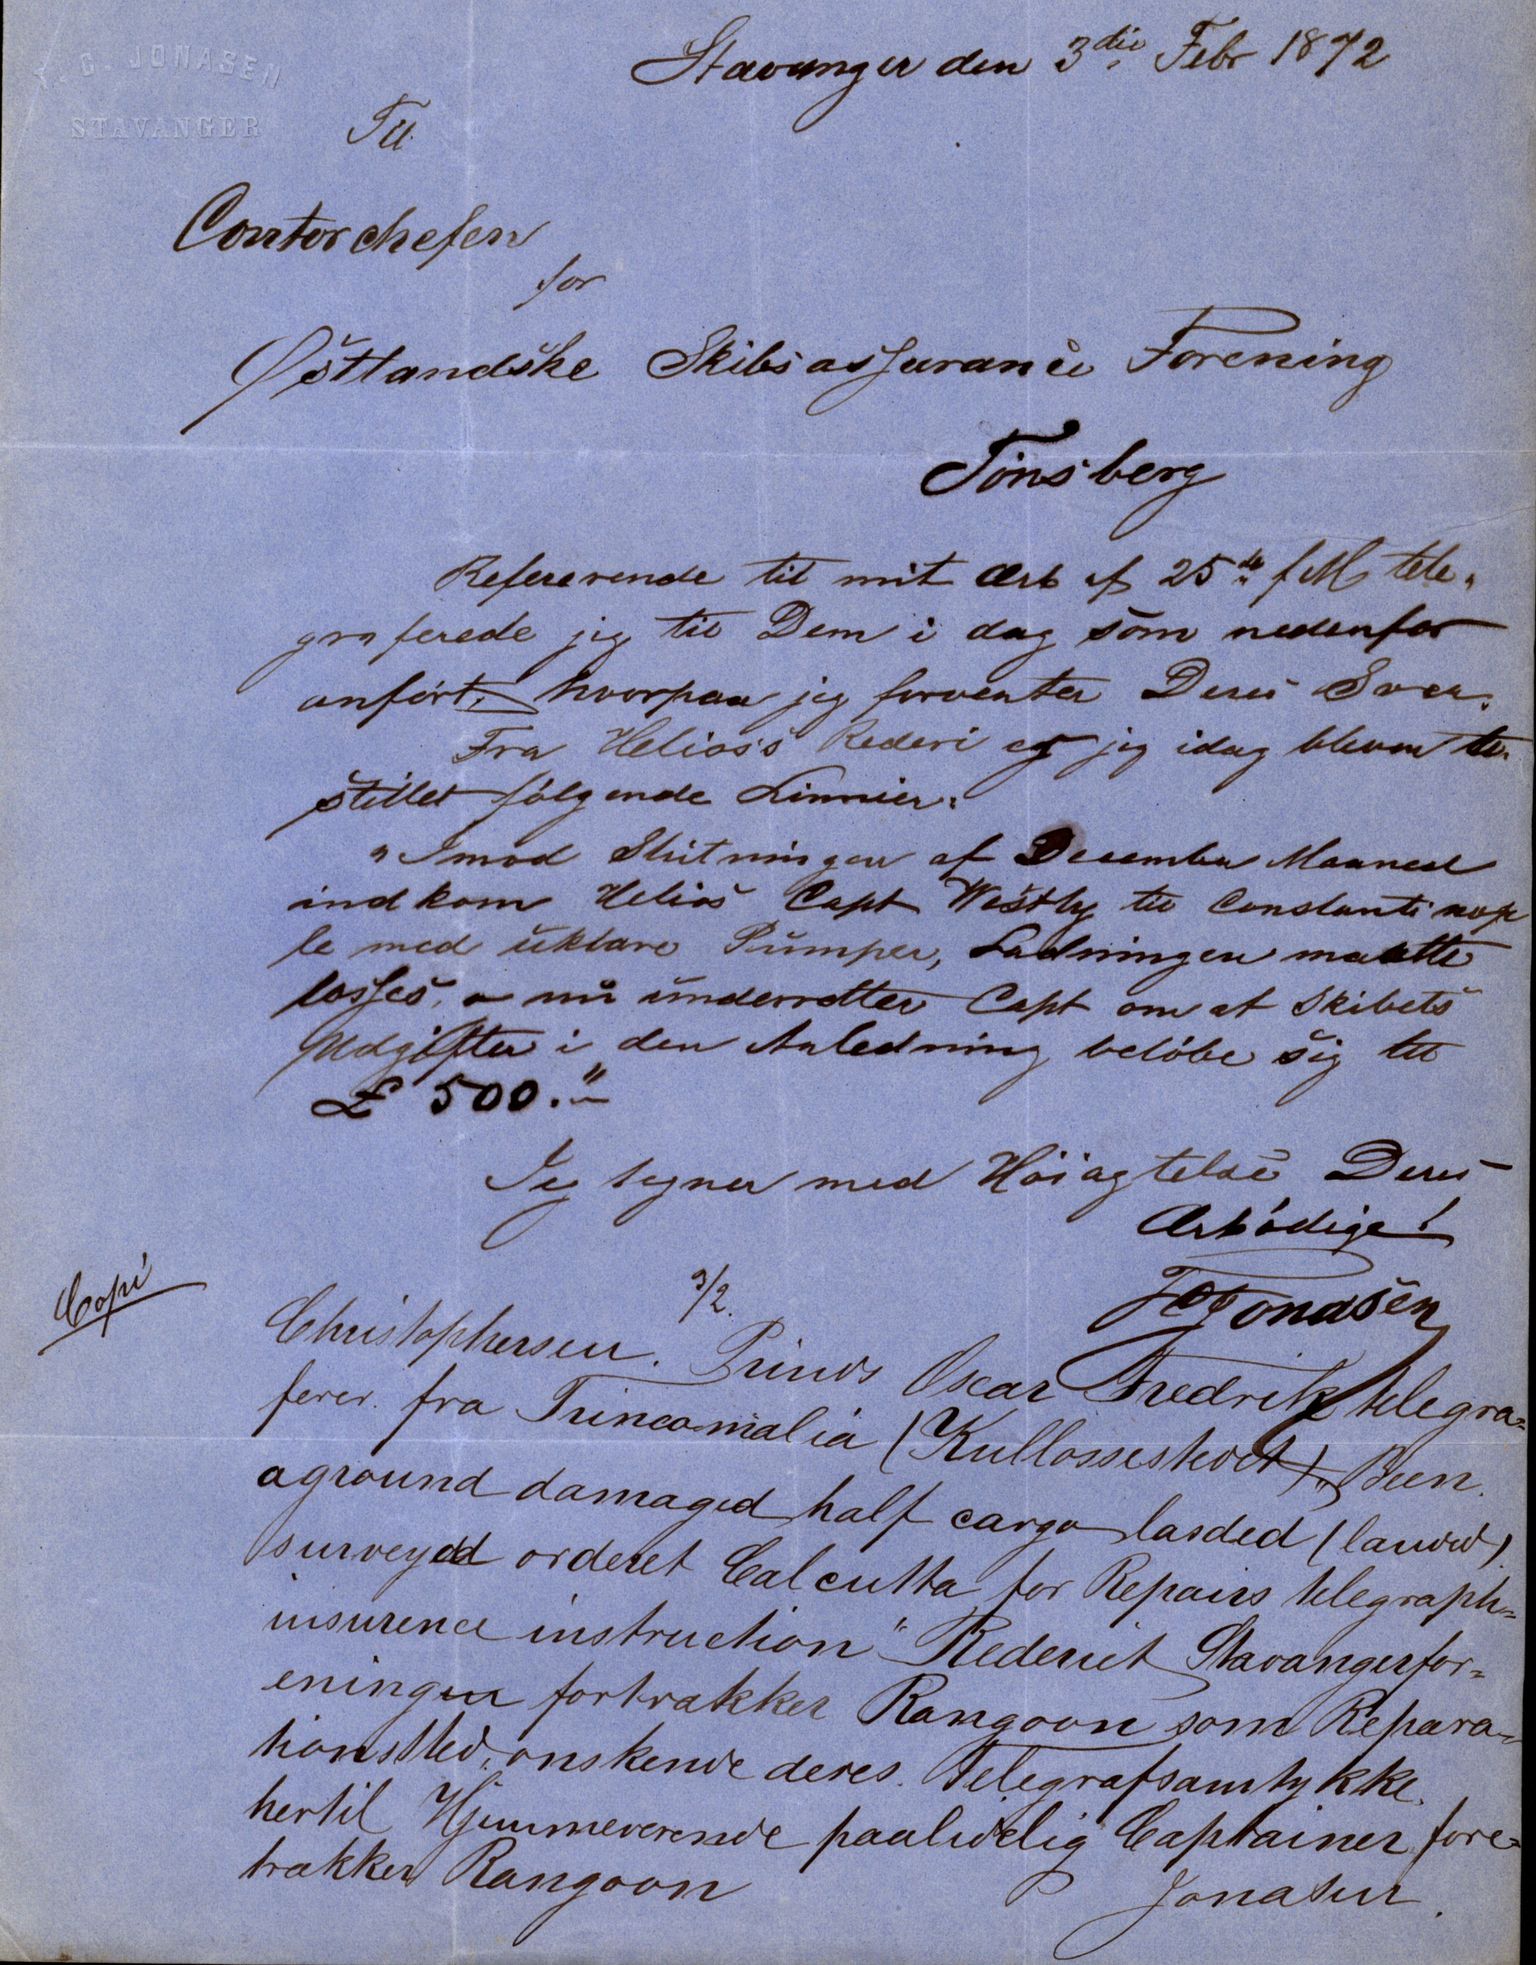 T. G. JONASEN
STAVANGER
Stavanger den 3die Febr 1872
Til
Contorchefen
for
Østlandske Skibsassurance Forening
Tönsberg
Refererende til mit Ærb af 25de f M tele-
graferede jeg til Dem i dag som nedenfor
anfört, hvorpaa jeg forventer Deres Svar.
Fra Helios's Rederi er jeg idag bleven til-
stillet fölgende Linnier:
"Imod Slutningen af December Maaned
indkom Helios Capt Westby til Constantinop
le med uklare Pumper, Ladningen maatte
losses, a nu underretter Capt om at Skibets
Udgifter i den Anledning belöbe sig til
£ 500."
Jeg tegner med Höiagtelse Deres
Ærbödige!
T G Jonasen
Copi
3/2.
Christophersen. Prinds Oscar Fredrik telegra-
ferer fra Trincomalia (Kullosseshvet). Been
aground damaged half cargo lasded (landed)
surveyed orderet Calcutta for Repairs telegraph-
insurence instruction" Rederiet Stavangerfor-
eningen fortrækker Rangoon som Repara-
tionssted, onskende deres Telegrafsamtykke
hertil Hjemmeverende paalidelig Captainer fore-
trækker Rangoon
Jonasen.